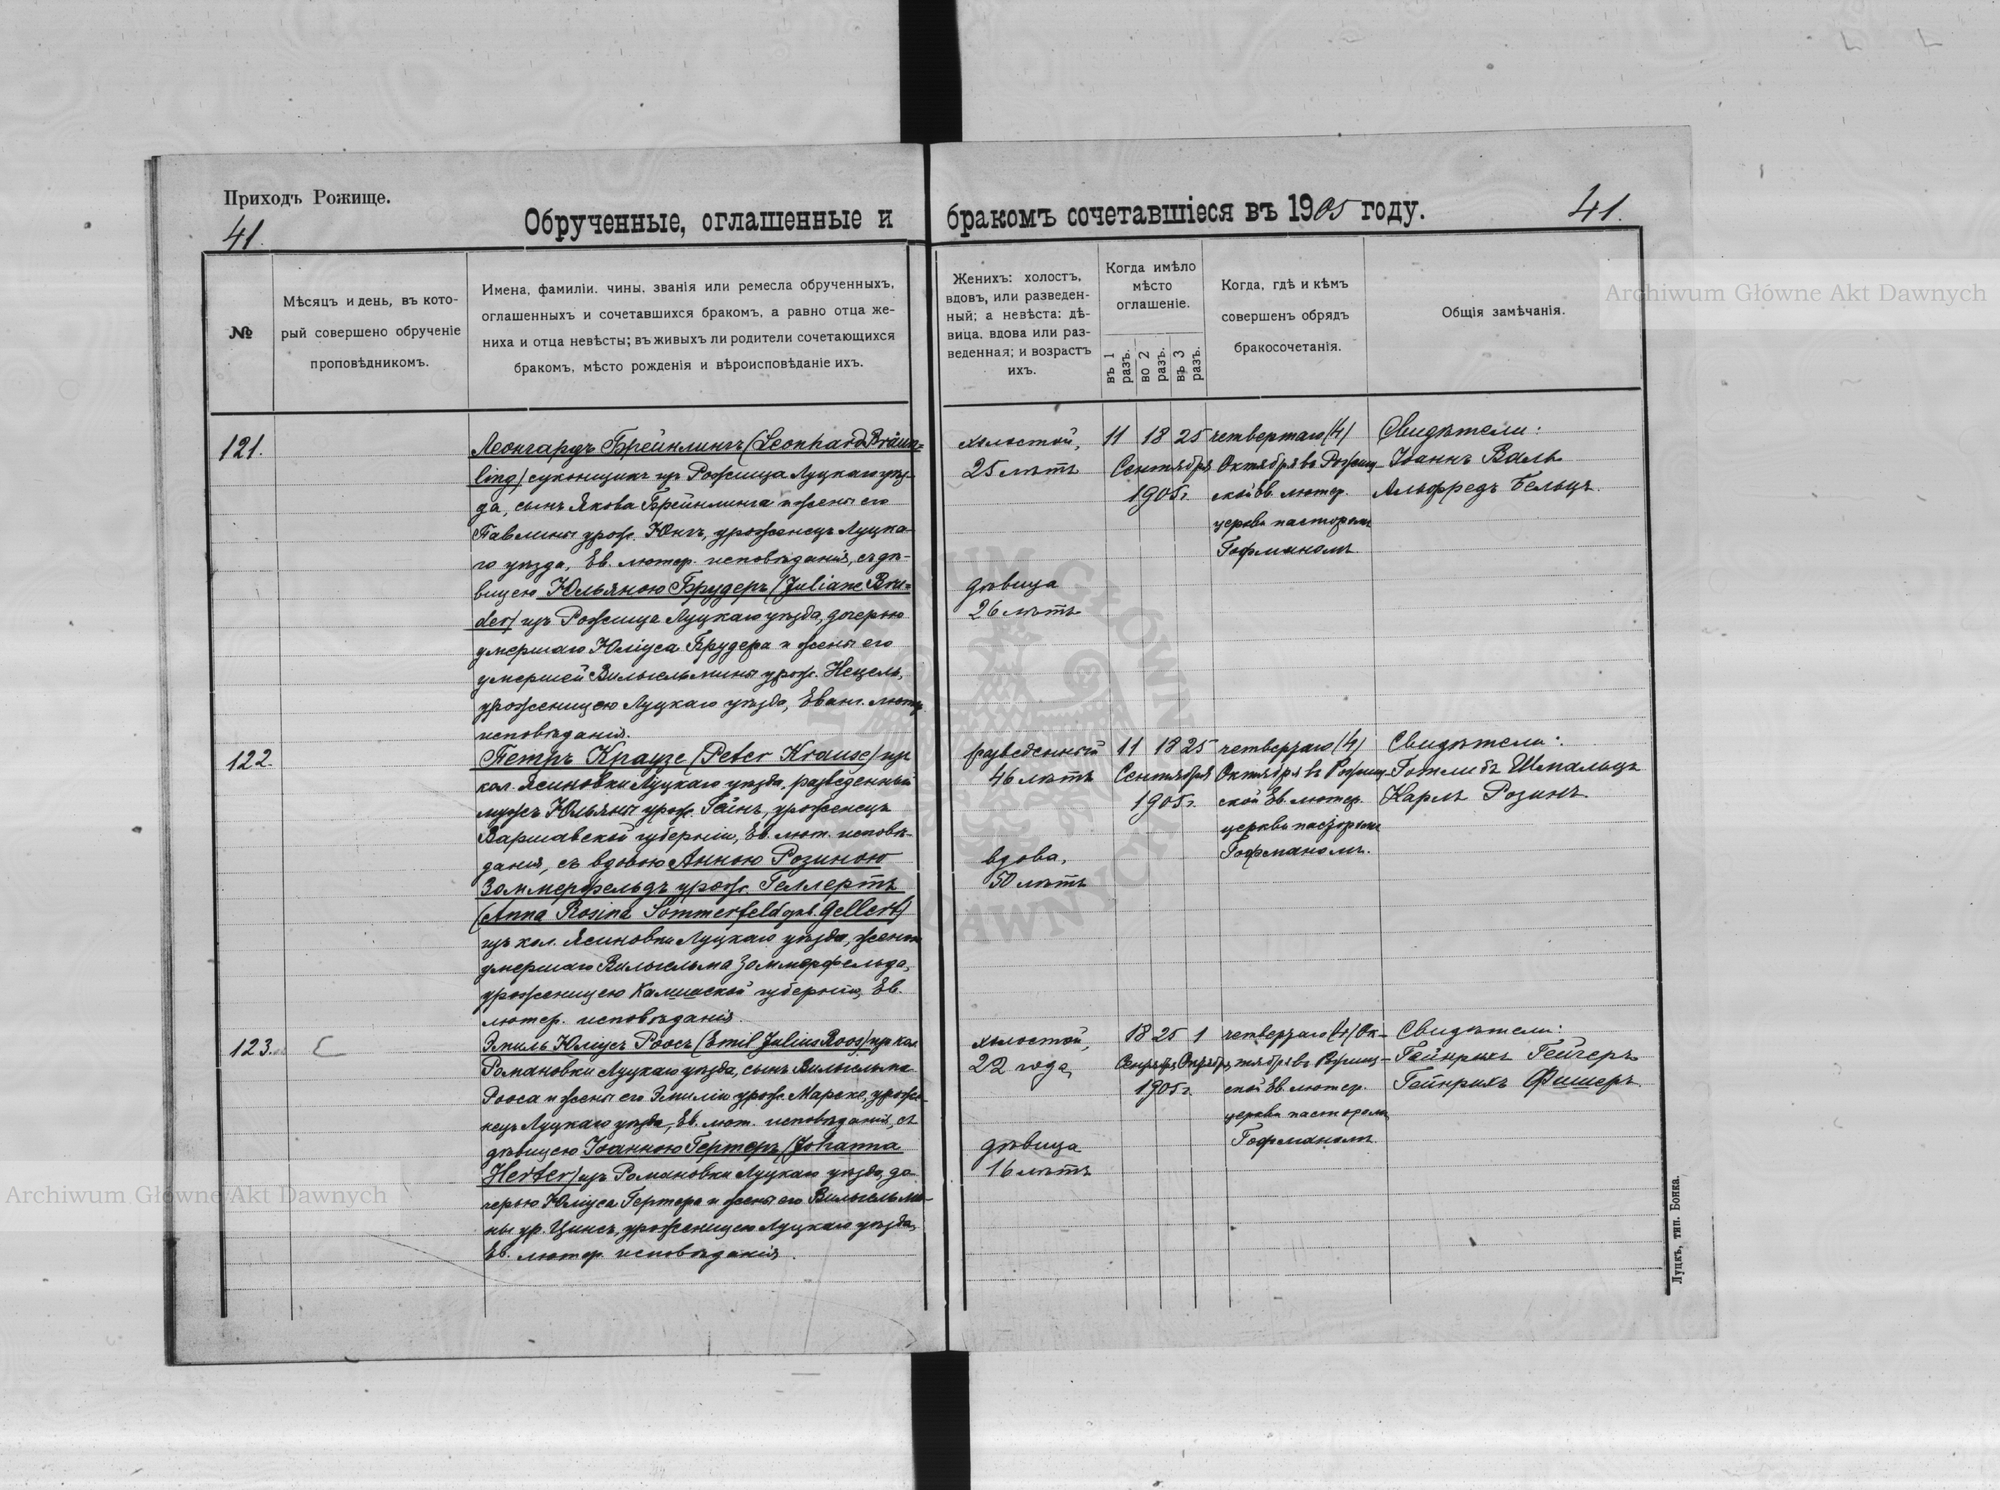 Приходъ Рожище.
41.
Обрученные, оглашенные и бракомъ сочетавшіеся въ 1905 году.
41.
№
Мѣсяцъ и день, въ кото-
рый совершено обрученіе
проповѣдникомъ.
Имена, фамиліи. чины, званія или ремесла обрученныхъ,
оглашенныхъ и сочетавшихся бракомъ, а равно отца же-
ниха и отца невѣсты; въ живыхъ ли родители сочетающихся
бракомъ, мѣсто рожденія и вѣроисповѣданіе ихъ.
Женихъ: холостъ,
вдовъ, или разведен-
ный; а невѣста: дѣ-
вица, вдова или раз-
веденная; и возрастъ
ихъ.
Когда имѣло
мѣсто
оглашеніе.
въ 1 разъ.
во 2 разъ.
въ 3 разъ.
Когда, гдѣ и кѣмъ
совершенъ обрядъ
бракосочетанія.
Общія замѣчанія.
121.
Леонгардъ Брейнлингъ (Leonhard Bräun=
ling) суконщикъ изъ Рожища Луцкаго уѣз-
да, сынъ Якова Брейнлинга и жены его
Павлины урож. Юнгъ, уроженецъ Луцка-
го уѣзда, Ев. лютер. исповѣданія, съ дѣ-
вицею Юльяною Брудеръ (Juliane Bru=
der) изъ Рожища Луцкаго уѣзда, дочерью
умершаго Юліуса Брудера и жены его
умершей Вильгельмины урож. Нецель,
уроженицею Луцкаго уѣзда, Еванг. лютер.
исповѣданія.
холостой,
25 лѣтъ
дѣвица
26 лѣтъ
11 18 25
Сентября
1905 г.
четвертаго (4)
Октября въ Рожищ-
ской Ев. лютер.
церкви пасторомъ
Гофманомъ.
Свидѣтели:
Іоаннъ Валь
Альфредъ Бельцъ.
122.
Петръ Краузе (Peter Krause) изъ
кол. Ясиновки Луцкаго уѣзда, разведенный
мужъ Юльяны урож. Гейнъ, уроженецъ
Варшавской губерніи, Ев. лют. исповѣ-
данія, съ вдовою Анною Розиною
Зоммерфельдъ урож. Геллертъ
(Anna Rosina Sommerfeld geb. Gellert)
изъ кол. Ясиновки Луцкаго уѣзда, женою
умершаго Вильгельма Зоммерфельда,
уроженицею Калишской губерніи, Ев.
лютер. исповѣданія.
разведенный
46 лѣтъ
вдова,
50 лѣтъ
11 18 25
Сентября
1905 г.
четвертаго (4)
Октября въ Рожищ-
ской Ев. лютер.
церкви пасторомъ
Гофманомъ.
Свидѣтели:
Готлибъ Шмальцъ
Карлъ Розинъ
123.
Эмиль Юліусъ Роосъ (Emil Julius Roos) изъ кол.
Романовки Луцкаго уѣзда, сынъ Вильгельма
Рооса и жены его Эмиліи урож. Марске, уроже-
нецъ Луцкаго уѣзда, Ев. лют. исповѣданія, съ
дѣвицею Іоанною Гертеръ (Johanna
Herter) изъ Романовки Луцкаго уѣзда, до-
черью Юліуса Гертера и жены его Вильгельми-
ны ур. Цинсъ, уроженицею Луцкаго уѣзда,
Ев. лютер. исповѣданія.
холостой,
22 года,
дѣвица
16 лѣтъ
18 25 1
Сентября, Октября,
1905 г.
четвертаго (4) Ок-
тября въ Рожищ-
ской Ев. лютер.
церкви пасторомъ
Гофманомъ.
Свидѣтели:
Гейнрихъ Гейгеръ
Гейнрихъ Фишеръ.
Луцкъ, тип. Бонка.
Archiwum Główne Akt Dawnych
Archiwum Główne Akt Dawnych